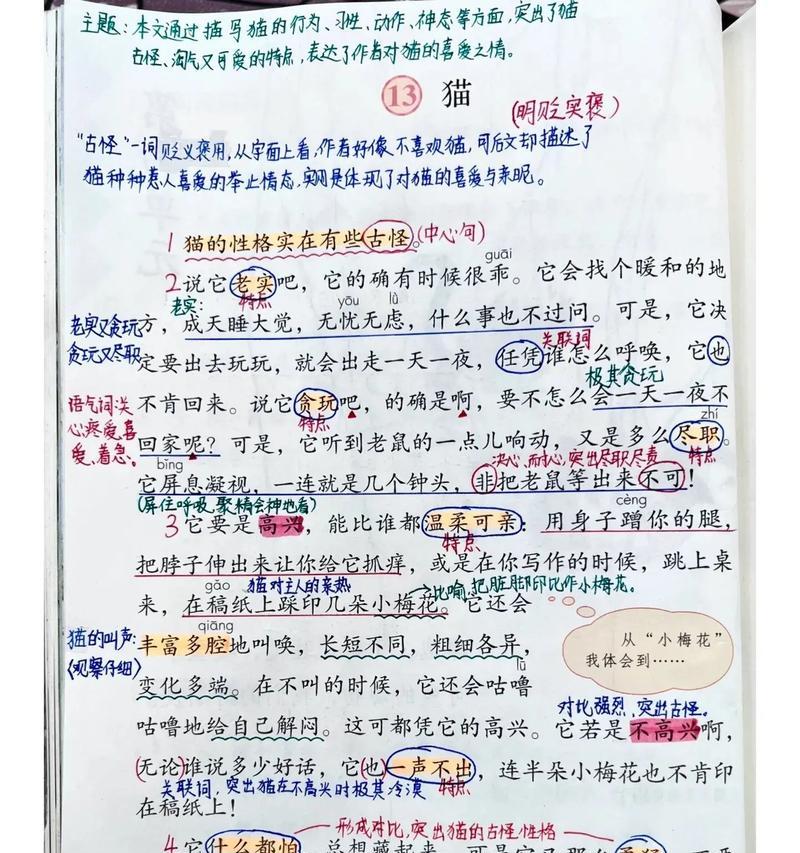 主题：本文通过描写猫的行为、习性、动作、神态等方面，突出了猫
古怪、淘气又可爱的特点，表达了作者对猫的喜爱之情。
13 猫
(明贬实褒)
“古怪”一词贬义褒用，从字面上看，作者好像不喜欢猫，可后文却描述了
猫种种惹人喜爱的举止情态，实则是体现了对猫的喜爱与亲昵。
1 猫的性格实在有些古怪。(中心句)
guāi
2 说它老实吧，它的确有时候很乖。它会找个暖和的地
老实： 特点 yōu lǜ
老实又贪玩
方，成天睡大觉，无忧无虑，什么事也不过问。可是，它决
关联词
贪玩又尽职
定要出去玩玩，就会出走一天一夜，任凭谁怎么呼唤，它也
极其贪玩
语气词：关
心、疼爱、喜
爱、着急。
不肯回来。说它贪玩吧，的确是啊，要不怎么会一天一夜不
特点 zhí
回家呢？可是，它听到老鼠的一点儿响动，又是多么尽职。
bǐng 决心、耐心，突出尽职尽责 特点
它屏息凝视，一连就是几个钟头，非把老鼠等出来不可！
(屏住呼吸，聚精会神地看) cèng
3 它要是高兴，能比谁都温柔可亲：用身子蹭你的腿，
特点
把脖子伸出来让你给它抓痒，或是在你写作的时候，跳上桌
gǎo 猫对主人的亲热 比喻，把脏脚印比作小梅花。
来，在稿纸上踩印几朵小梅花。它还会
qiāng
猫的叫声：
(观察仔细)
丰富多腔地叫唤，长短不同，粗细各异，
lū
变化多端。在不叫的时候，它还会咕噜
从“小梅花”
我体会到……
对比强烈，突出古怪。
咕噜地给自己解闷。这可都凭它的高兴。它若是不高兴啊，
(无论)谁说多少好话，它(也)一声不出，连半朵小梅花也不肯印
关联词，突出猫在不高兴时极其冷漠 特点
在稿纸上！
形成对比，突出猫的古怪性格
4 它什么都怕，总想藏起来。可是它又那么勇猛，不要